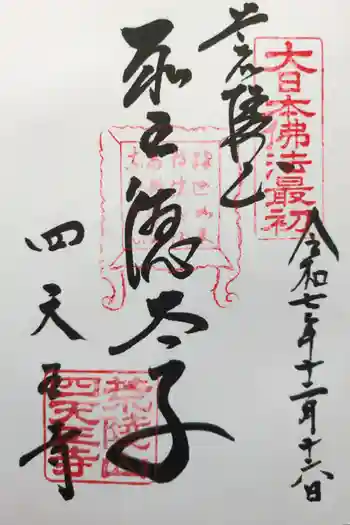 大日本佛法最初
荒陵山
令和七年十二月十六日
聖徳太子
四天王寺
荒陵山
四天王寺